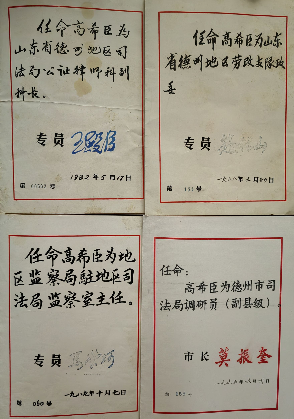 任命高希臣为
山东省德州地区司
法局公证律师科副
科长。
专员
1982年5月17日
第 号
任命高希臣为山东
省德州地区劳改支队政
委
专员
第 号
任命高希臣为地
区监察局驻地区司
法局监察室主任。
专员
一九八九年十月七日
第 号
任命:
高希臣为德州市司
法局调研员(副县级)。
市长 莫振奎
第 号